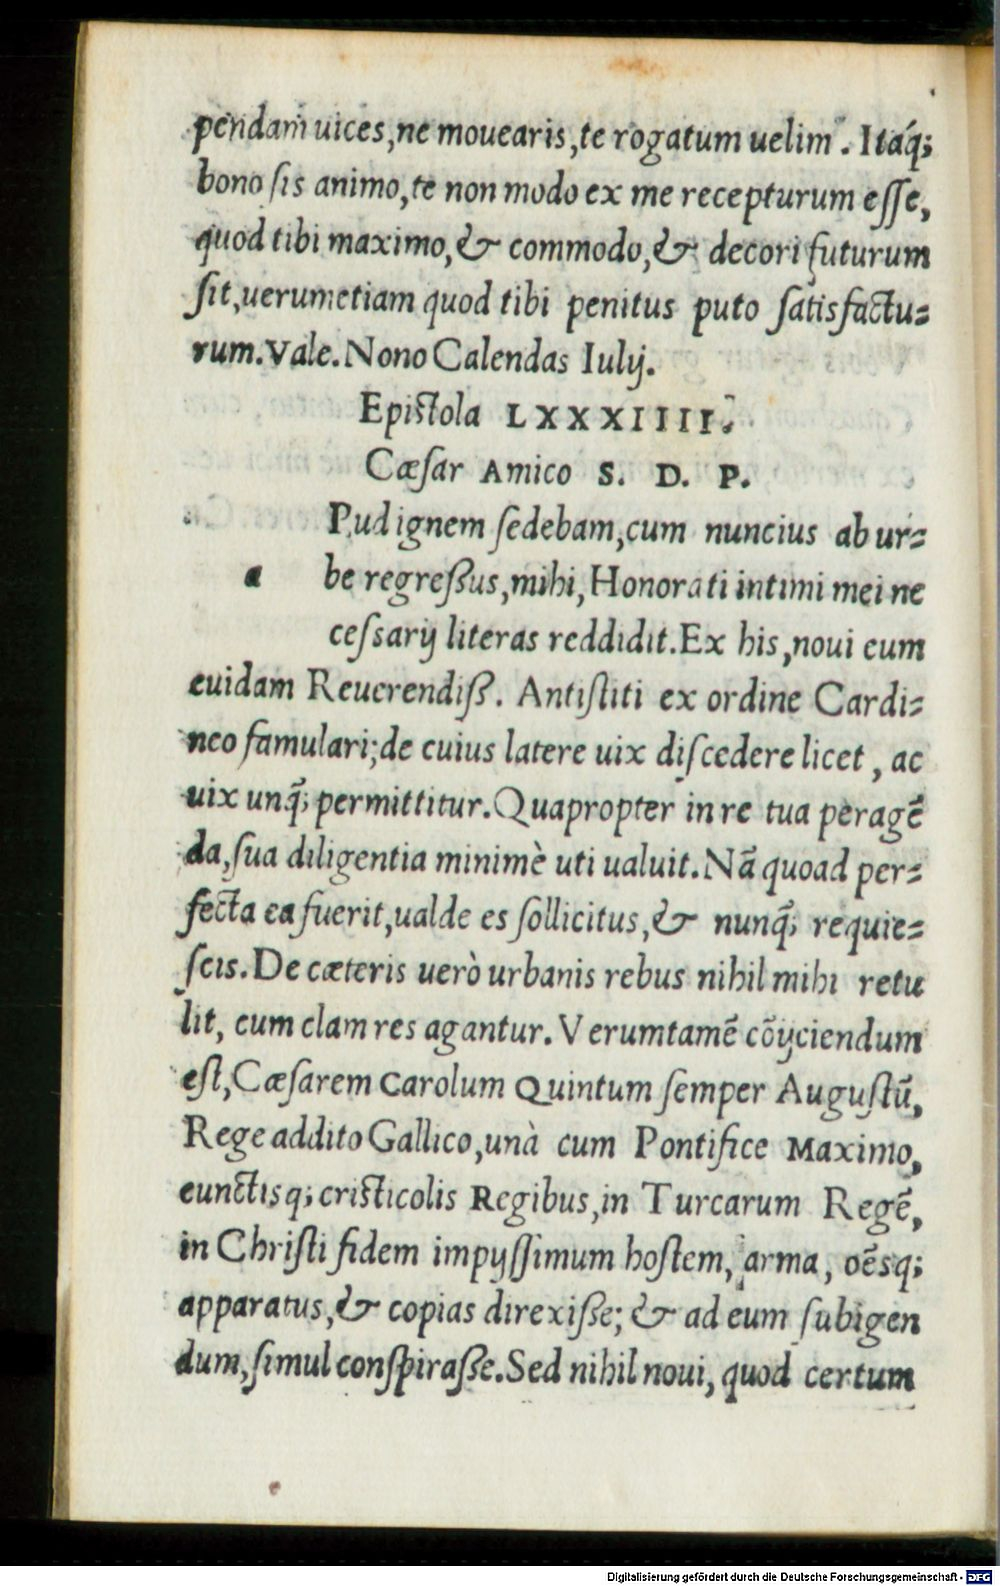 pendam uices, ne mouearis, te rogatum uelim. Itáq;
bono ſis animo, te non modo ex me recepturum eſſe,
quod tibi maximo, & commodo, & decori futurum
ſit, uerumetiam quod tibi penitus puto ſatisfactu=
rum. Vale. Nono Calendas Iulij.
Epiſtola LXXXIIII.
Cæſar Amico S. D. P.
Pud ignem ſedebam, cum nuncius ab ur=
a be regreßus, mihi, Honorati intimi mei ne
ceſſarij literas reddidit. Ex his, noui eum
cuidam Reuerendiß. Antiſtiti ex ordine Cardi=
neo famulari; de cuius latere uix diſcedere licet, ac
uix unq̃; permittitur. Quapropter in re tua peragẽ
da, ſua diligentia minimè uti ualuit. Nã quoad per=
fecta ea fuerit, ualde es ſollicitus, & nunq̃; requie=
ſcis. De cæteris uerò urbanis rebus nihil mihi retu
lit, cum clam res agantur. Verumtamẽ cõijciendum
eſt, Cæſarem Carolum Quintum ſemper Auguſtũ,
Rege addito Gallico, unà cum Pontifice Maximo,
cunctisq; criſticolis Regibus, in Turcarum Regẽ,
in Chriſti fidem impijſſimum hoſtem, arma, oẽsq;
apparatus, & copias direxiße; & ad eum ſubigen
dum, ſimul conſpiraße. Sed nihil noui, quod certum
Digitalisierung gefördert durch die Deutsche Forschungsgemeinschaft - DFG